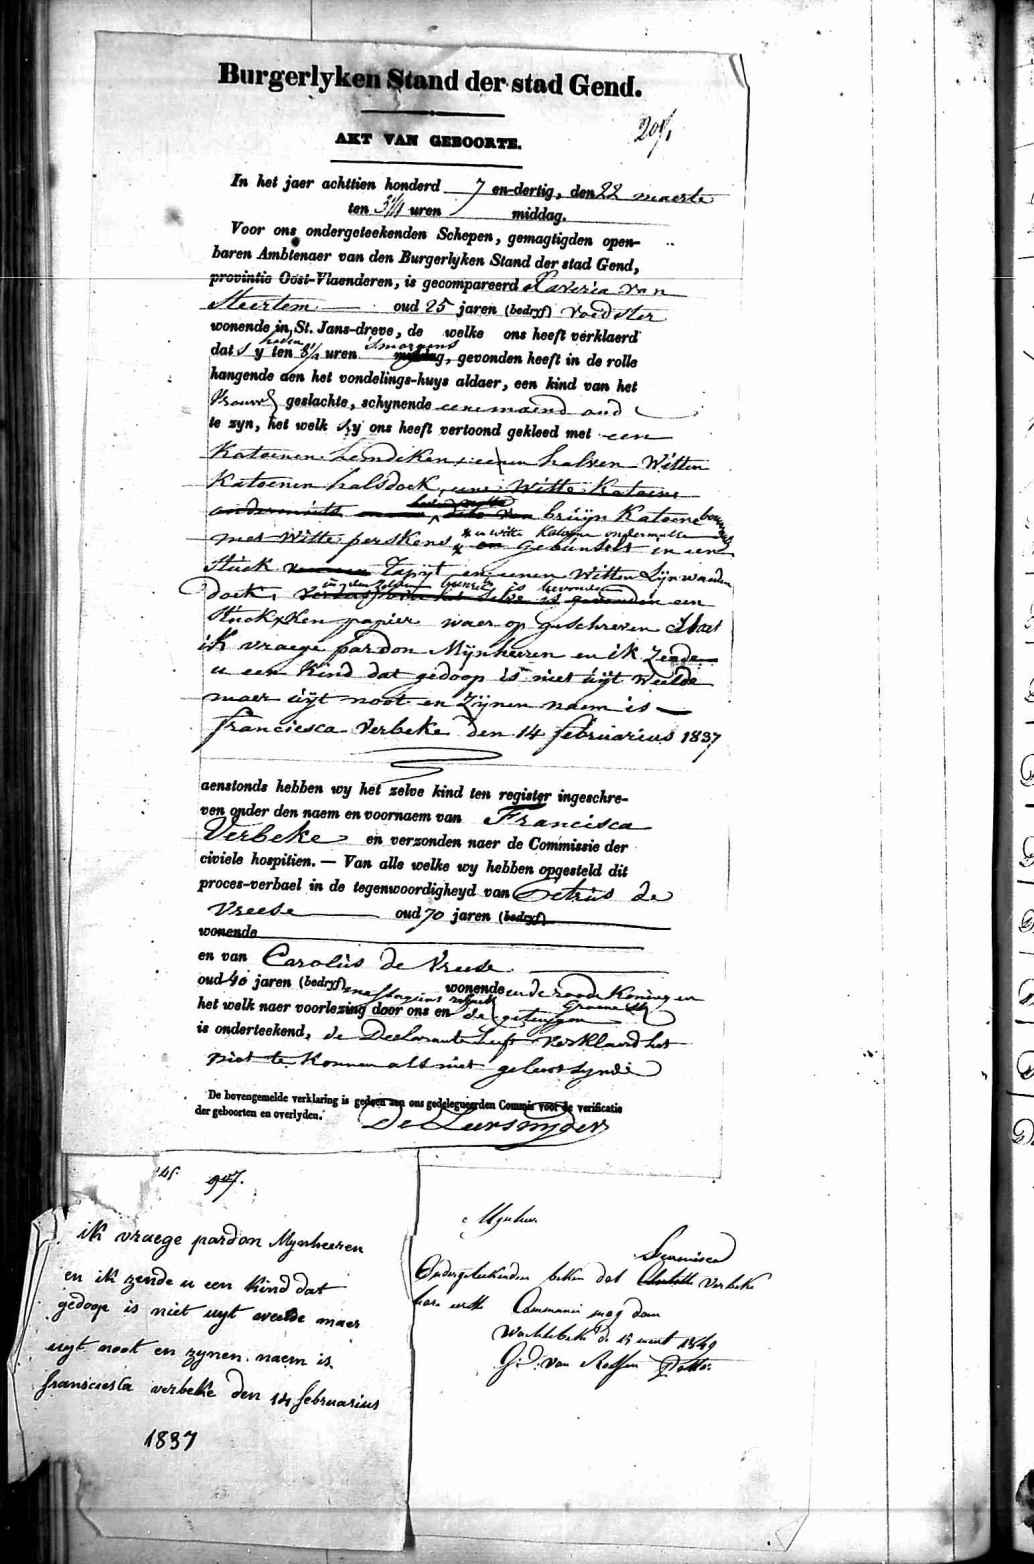 Burgerlyken Stand der stad Gend.
AKT VAN GEBOORTE.
207
In het jaer achttien honderd 7 en-dertig, den 22 maerte
ten 3¼ uren middag.
Voor ons ondergeteekenden Schepen, gemagtigden open-
baren Ambtenaer van den Burgerlyken Stand der stad Gend,
provintie Oost-Vlaenderen, is gecompareerd Xaveria van
Steertem oud 25 jaren (bedryf) voedster
wonende in St. Jans-dreve, de welke ons heeft verklaerd
dat s y heden ten uren smorgens middag, gevonden heeft in de rolle
hangende aen het vondelings-huys aldaer, een kind van het
Vrouwel geslachte, schynende eene maend oud
te zyn, het welk zy ons heeft vertoond gekleed met een
Katoenen hemdeken, eenen halven Witten
Katoenen halsdoek, eene Witte Katoene
bruyn Katoene
met Witte perskens * en witte Katoene gebunselt in een
stuk Tapyt en eenen Witten Lynwaeden
doek, een
Stuckxken papier waer op geschreven staet
ik vraege pardon Mynheeren en ik Zende
u een Kind dat gedoop is niet uyt Weelde
maer uyt noot en Zynen naem is
franciesca Verbeke den 14 februarius 1837
aenstonds hebben wy het zelve kind ten register ingeschre-
ven onder den naem en voornaem van Francisca
Verbeke en verzonden naer de Commissie der
civiele hospitien. — Van alle welke wy hebben opgesteld dit
proces-verbael in de tegenwoordigheyd van Petrus de
Vreese oud 70 jaren (bedryf)
wonende
en van Carolus de Vreese
oud 40 jaren (bedryf) wonende in de roode Koning en
het welk naer voorlezing door ons en de getuygen
is onderteekend, de Declarante heeft verklaerd het
niet te Konnen als niet geleert synde
De bovengemelde verklaring is gedaen aen ons gedelegueerden Commis voor de verificatie
der geboorten en overlyden.
De Leersnyder
907.
ik vraege pardon Mynheeren
en ik zende u een Kind dat
gedoop is niet uyt weelde maer
uyt noot en zynen naem is
fransciesca verbeke den 14 februarius
1837
Mynheer
Francisca
Ondergeteekenden beken dat Verbeke
hare eerste Communie mag doen
Wachtebeke de 15 meert 1849
G. D. van